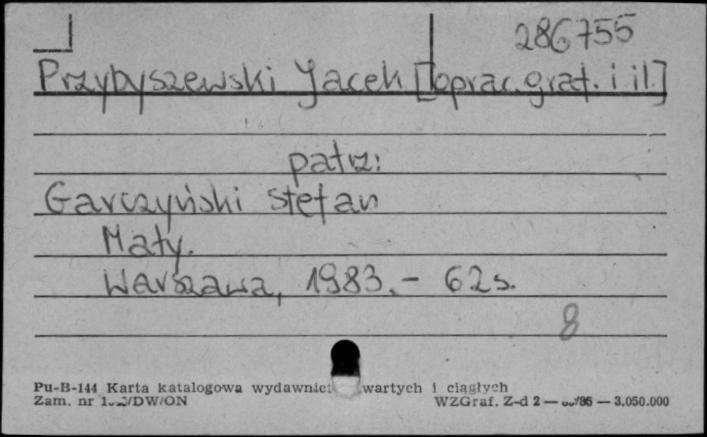 286755
Przybyszewski Jacek [oprac. graf. i il.]
patrz:
Garczyński Stefan
Mały.
Warszawa, 1983. - 62 s.
8
Pu-B-144 Karta katalogowa wydawnict wartych i ciągłych
Zam. nr /DW/ON WZGraf. Z-d 2 — /86 — 3.050.000